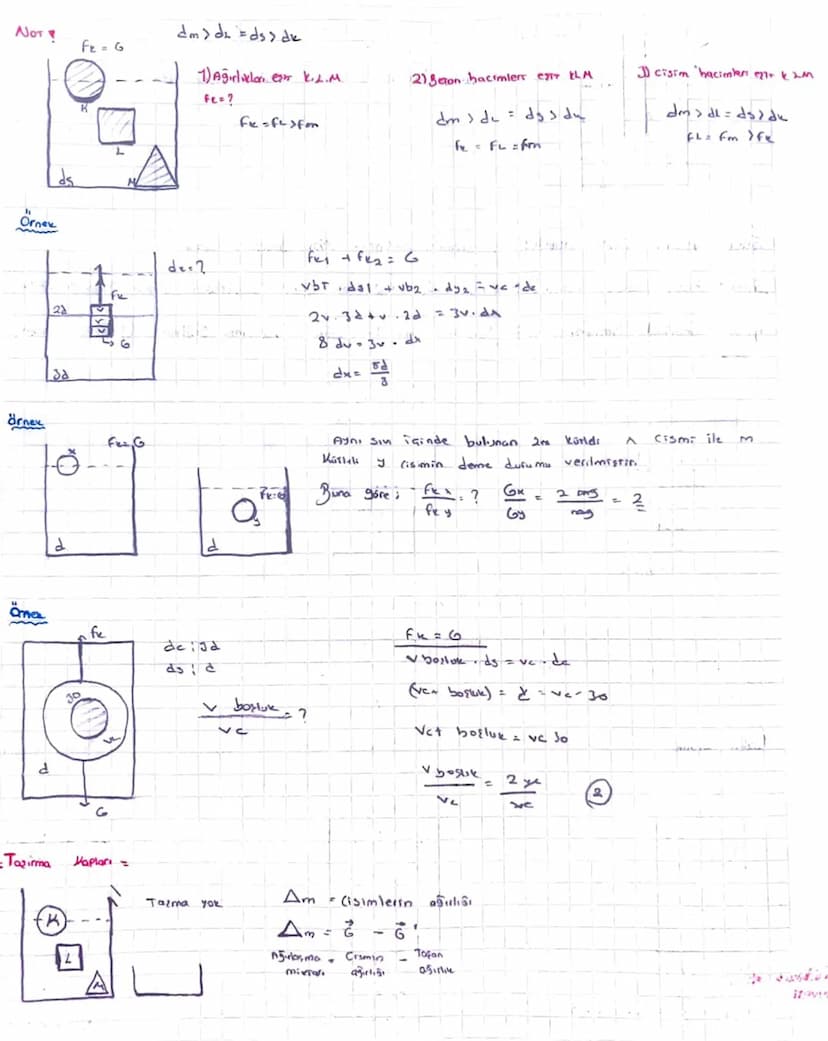 Not !
dm > dL = ds > dk
Fk = G
K
L
M
ds
1) Ağırlıkları eşit K.L.M
Fk = ?
Fk = FL > Fm
2) Batan hacimleri eşit KLM
dm > dL = ds > dk
Fk = FL = Fm
3) Cisim hacimleri eşit KLM
dm > dL = ds > dk
FL = Fm > Fk
Örnek
dx = ?
Fk
2d
v
v
v
G
3d
Fk1 + Fk2 = G
Vb1 . ds1 + vb2 . ds2 = vc . dc
2v . 3d + v . 2d = 3v . dx
8 dv = 3v . dx
dx = 8d/3
Örnek
x
Fk = G
d
Fk = G
y
d
Aynı sıvı içinde bulunan 2m kütleli x cismi ile m
kütleli y cismin denge durumu verilmiştir.
Buna göre ; Fk x / Fk y = ? Gx / Gy = 2 mg / mg = 2
Örnek
Fk
3d
vc
d
G
dc : 3d
ds : d
v boşluk / vc = ?
Fk = G
V boşluk . ds = vc . dc
(vc + boşluk) = d = vc - 3d
Vc + boşluk = vc 3d
V boşluk / Vc = 2 vc / vc
2
Taşırma Kapları =
K
L
M
Taşma yok
Δm = Cisimlerin ağırlığı
Δm = G - G'
Ağırlaşma = Cismin - Taşan
miktarı ağırlığı ağırlık